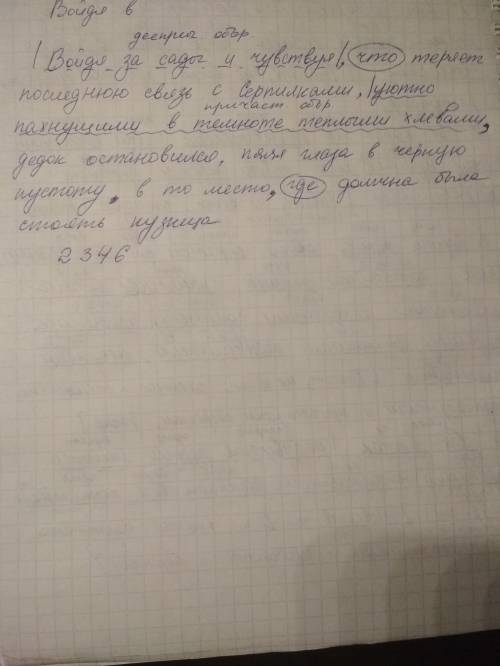 Войдя в
дееприч. обор.
Войдя за сады и чувствуя, что теряет
последнюю связь с верпилками, уютно
причаст обор.
пахнущими в темноте теплыми хлевами,
дедок остановился, пяля глаза в черную
пустоту, в то место, где должна была
стоять кузница
2346